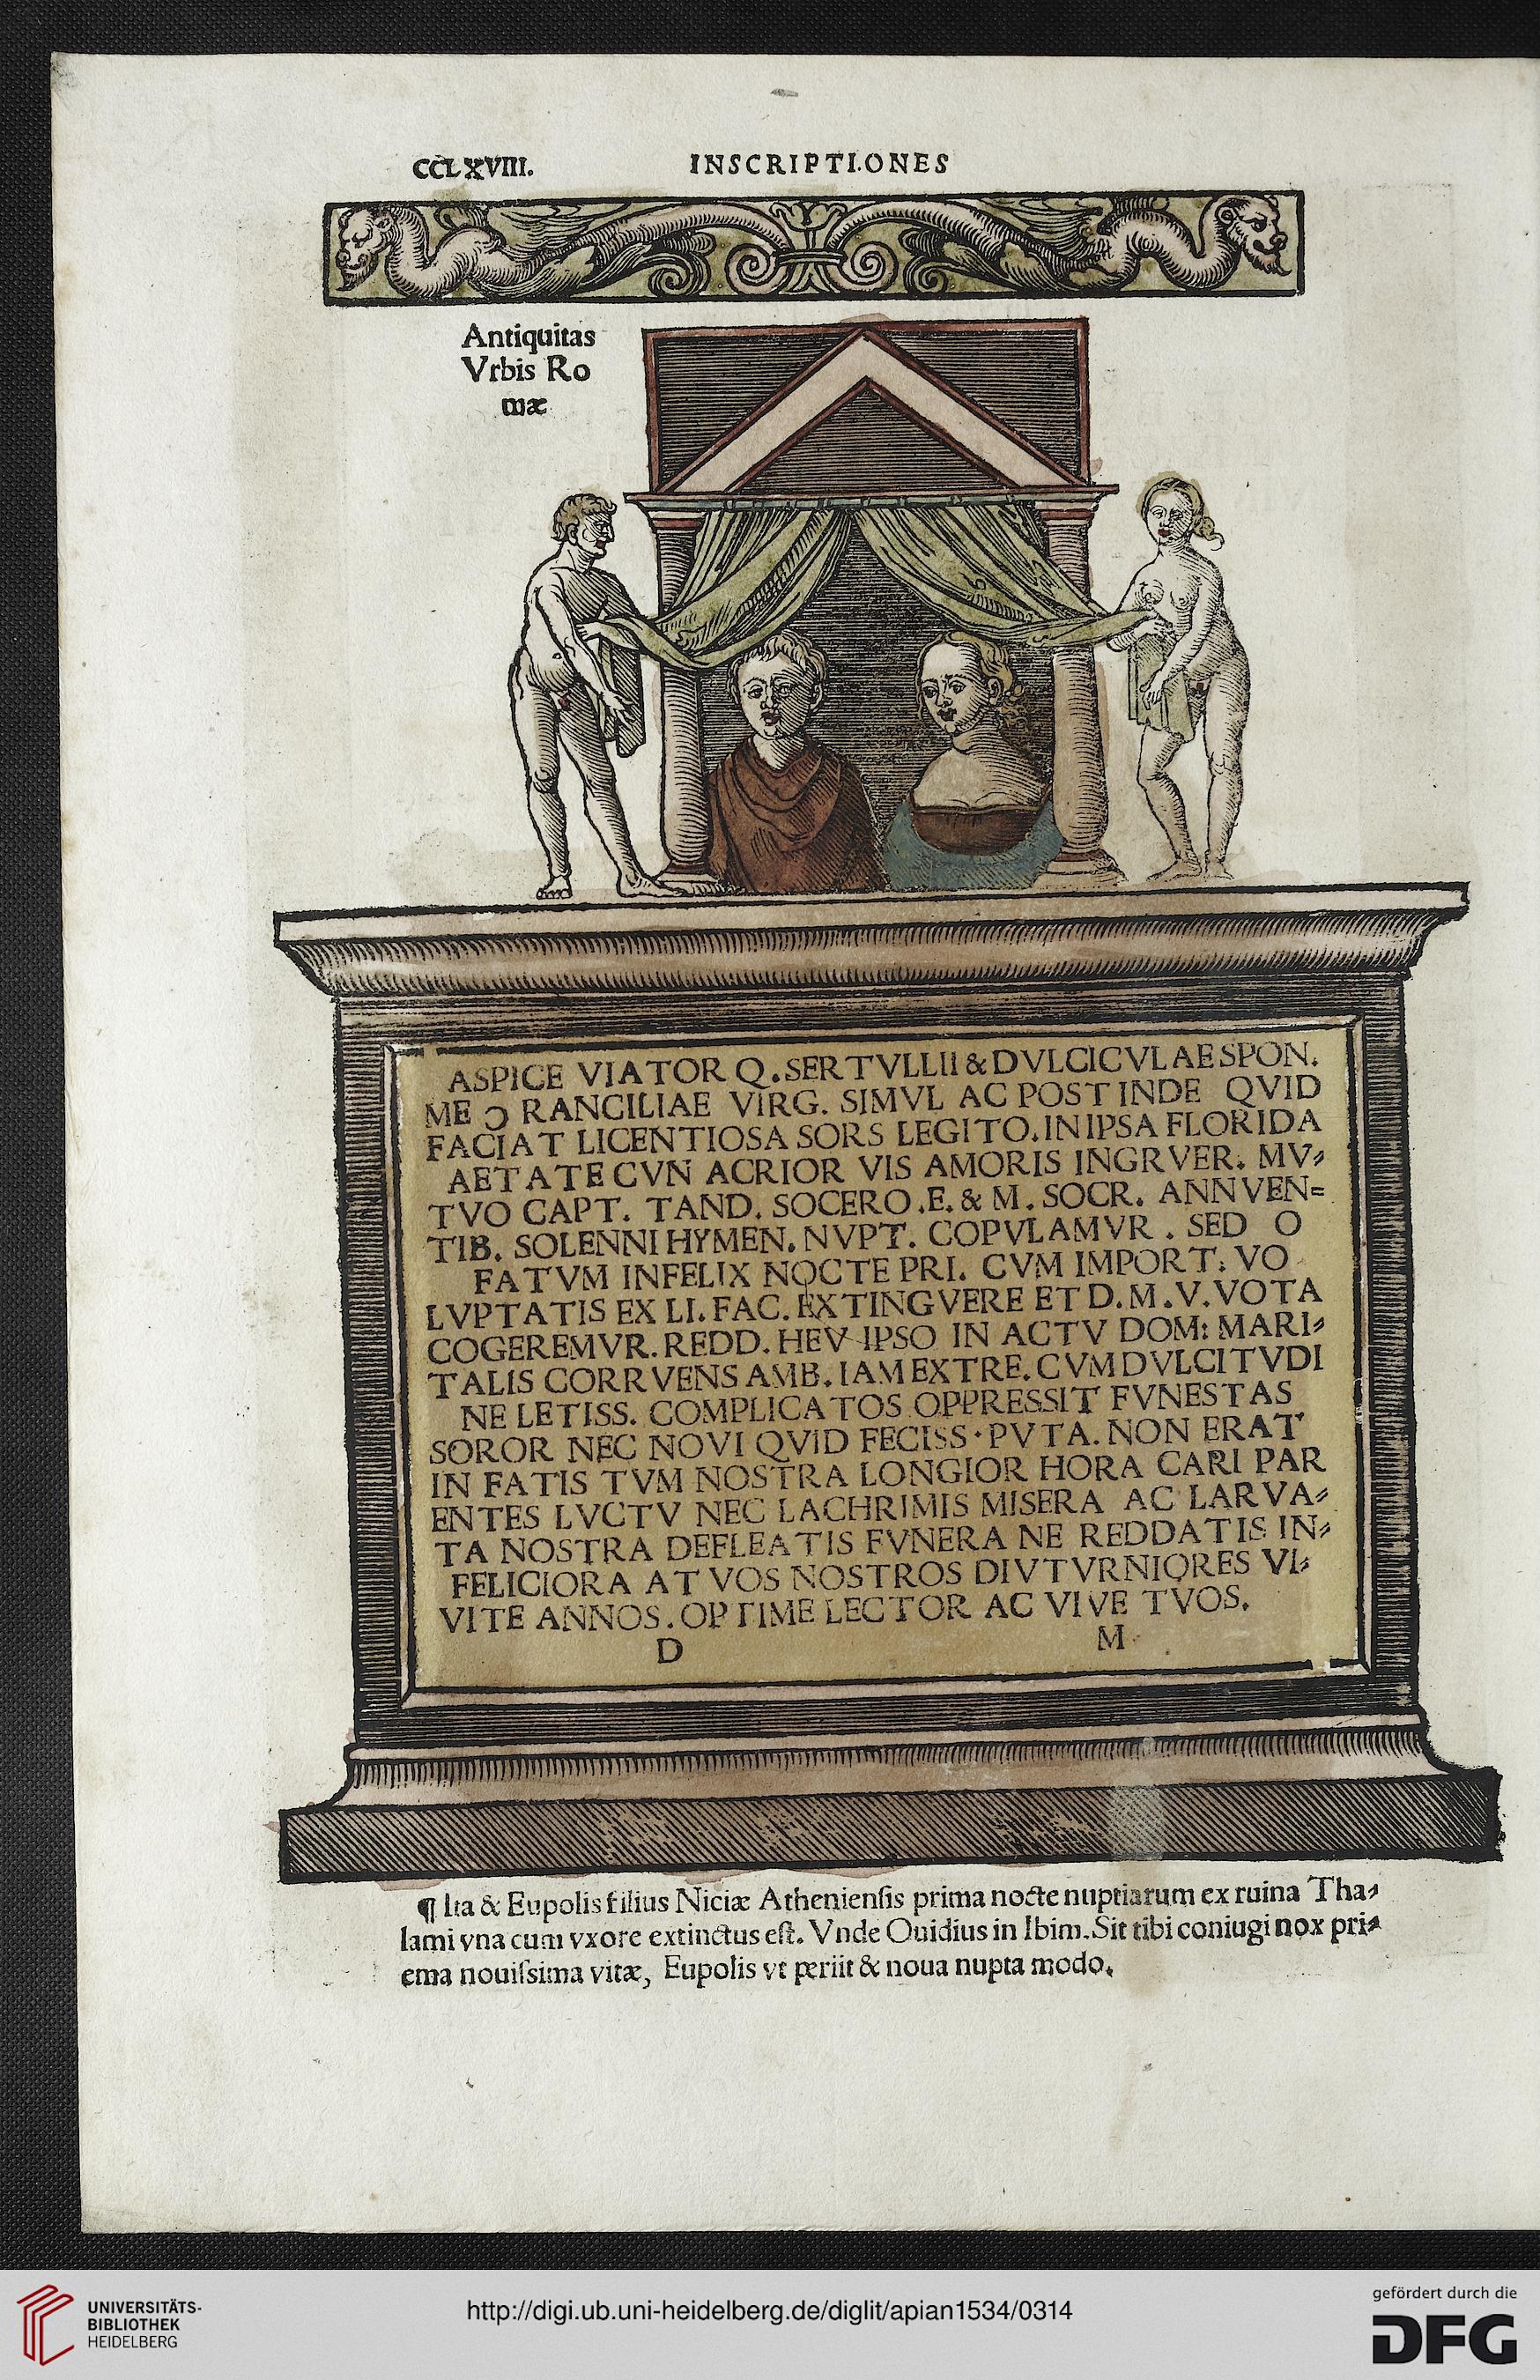 CCLXVIII. INSCRIPTI.ONES
Antiquitas
Vrbis Ro
mæ
ASPICE VIATOR Q.SERTVLLII & DVLCICVLAE SPON.
ME Ↄ RANCILIAE VIRG. SIMVL AC POST INDE QVID
FACIAT LICENTIOSA SORS LEGITO.IN IPSA FLORIDA
AETATE CVN ACRIOR VIS AMORIS INGRVER. MV⸗
TVO CAPT. TAND. SOCERO .E. & M. SOCR. ANNVEN=
TIB. SOLENNI HYMEN. NVPT. COPVLAMVR . SED O
FATVM INFELIX NOCTE PRI. CVM IMPORT: VO
LVPTATIS EX LI. FAC. EXTINGVERE ET D.M.V.VOTA
COGEREMVR. REDD. HEV IPSO IN ACTV DOM: MARI⸗
TALIS CORRVENS AMB. IAM EXTRE. CVM DVLCITVDI
NE LETISS. COMPLICATOS OPPRESSIT FVNESTAS
SOROR NEC NOVI QVID FECISS·PVTA. NON ERAT
IN FATIS TVM NOSTRA LONGIOR HORA CARI PAR
ENTES LVCTV NEC LACHRIMIS MISERA AC LARVA⸗
TA NOSTRA DEFLEATIS FVNERA NE REDDATIS IN⸗
FELICIORA AT VOS NOSTROS DIVTVRNIORES VI⸗
VITE ANNOS. OPTIME LECTOR AC VIVE TVOS.
D M
¶ Ita & Eupolis filius Niciæ Athenienſis prima nocte nuptiarum ex ruina Tha⸗
lami vna cum vxore extinctus eſt. Vnde Ouidius in Ibim. Sit tibi coniugi nox pri⸗
ema nouiſsima vitæ, Eupolis vt periit & noua nupta modo.
UNIVERSITÄTS-
BIBLIOTHEK
HEIDELBERG
http://digi.ub.uni-heidelberg.de/diglit/apian1534/0314
gefördert durch die
DFG